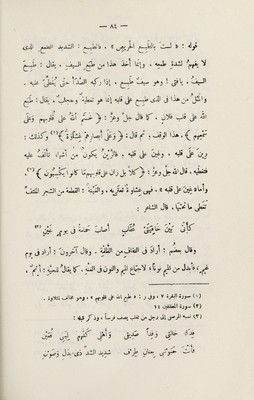 — ٨٤ —
قوله : « لستَ بالطَّبِعِ الحَرِيصِ » . فالطَّبِعُ : الشديد الطمع الذى
لا يفهم لشدةِ طمعه . وإنما أُخذ هذا من طَبَعِ السيف . يقال : طَبِعَ
السيف . يافتى ! وهو سيفٌ طَبِعٌ . إذا ركبه الصَّدَأُ حتى يُغَطِّىَ عليه .
والمثل من هذا فى الذى طُبِعَ على قلبِه إنما هو تغطيةٌ وحجابٌ . يقال : طَبَعَ
اللهُ على قلب فلان . كما قال جلّ وعزّ : ﴿ خَتَمَ اللهُ عَلَى قُلُوبِهِمْ وَعَلَى
سَمْعِهِمْ ﴾ . هذا الوقف ، ثم قال : ﴿ وَعَلَى أَبْصَارِهِمْ غِشَاوَةٌ ﴾ (١) وكذلك :
رِينَ على قلبِه . وغِينَ على قلبِه . فالرَّيْنُ يكون من أشياءَ تألّف عليه
فتغطيه . قال الله جلّ وعزّ : ﴿ كَلَّا بَلْ رَانَ عَلَى قُلُوبِهِمْ مَا كَانُوا يَكْسِبُونَ ﴾ (٢)
وأما « غِينَ على قلبِه » . فهى غشاوة تعتريه . والغَيْنَةُ : القطعة من الشجر الملتف
تغطى ما تحتها . قال الشاعر :
كَأَنِّى بَيْنَ خَافِيَتَىْ عُقَابٍ أَصَابَ حَمَامَةً فى يومِ غَيْنِ (٣)
وقال بعضهم : أراد فى التفافٍ من الظُّلمَةِ . وقال آخرون : أراد فى يوم
غيمٍ ، فأبدل من الميم نوناً ؛ لاجتماع الميم والنون فى الغنة . كما يقال للحيّة : أيْمٌ .
(١) سورة البقرة ٧ ، وفى ر : « طبع الله على قلوبهم » ، وهو مخالف للتلاوة .
(٢) سورة المطففين ١٤
(٣) نسبه المرصفى إلى رجل من تغلب يصف فرساً ، وذكر قبله :
فِدًى خَالَتِى وفِدًا صَدِيقِى وأَهْلِى كُلُّهُمْ لِبَنِى قُعَيْنِ
فأنتَ حَبَوْتَنِى بِعِنانِ طِرْفٍ شديدِ الشَّدِّ ذى بَذْلٍ وصَوْنِ